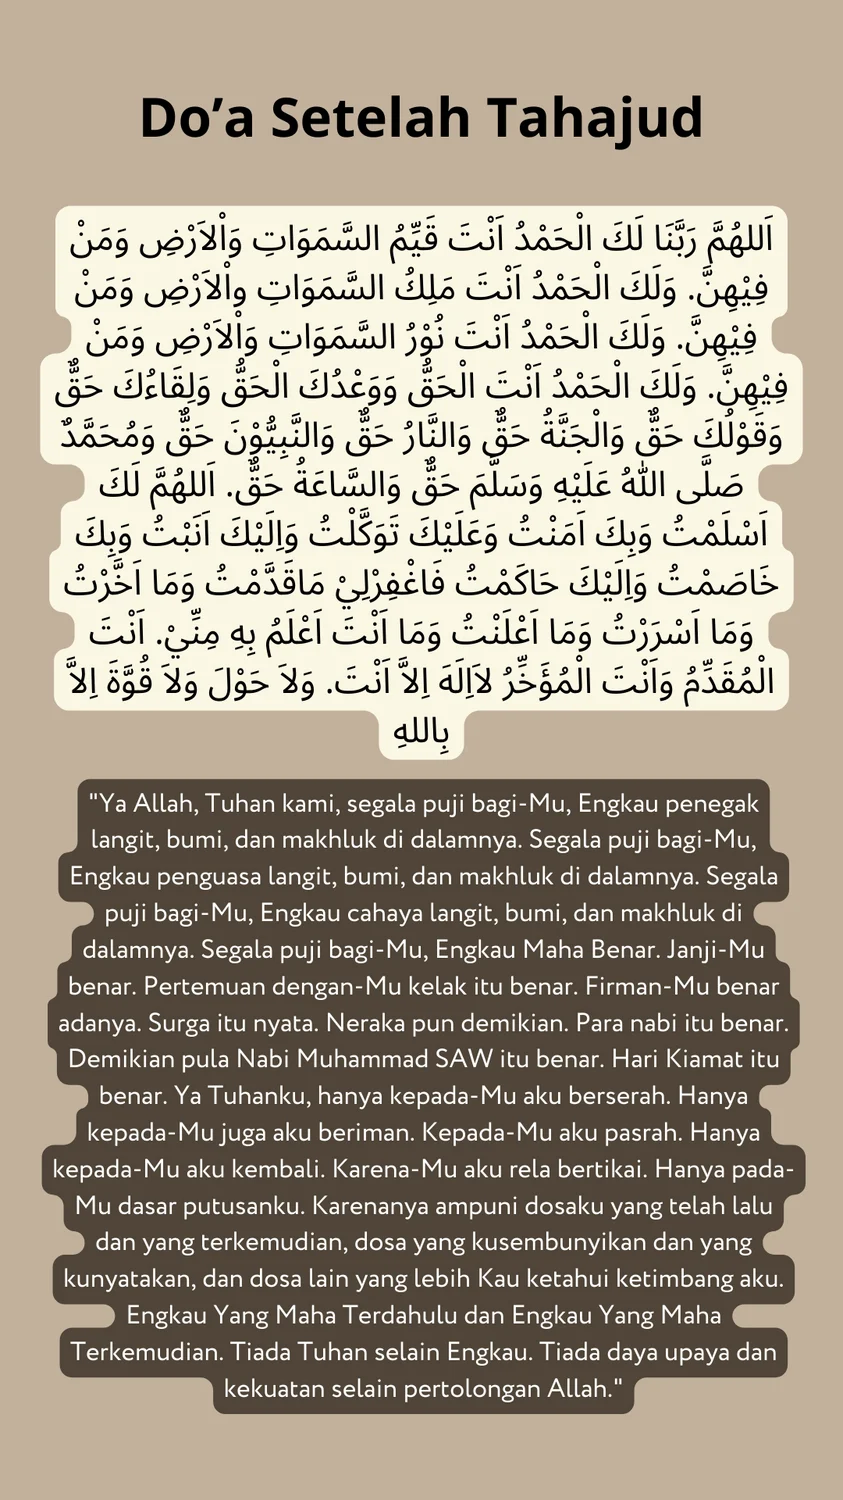 Do’a Setelah Tahajud
اَللهُمَّ رَبَّنَا لَكَ الْحَمْدُ اَنْتَ قَيِّمُ السَّمَوَاتِ وَاْلاَرْضِ وَمَنْ
فِيْهِنَّ. وَلَكَ الْحَمْدُ اَنْتَ مَلِكُ السَّمَوَاتِ واْلاَرْضِ وَمَنْ
فِيْهِنَّ. وَلَكَ الْحَمْدُ اَنْتَ نُوْرُ السَّمَوَاتِ وَاْلاَرْضِ وَمَنْ
فِيْهِنَّ. وَلَكَ الْحَمْدُ اَنْتَ الْحَقُّ وَوَعْدُكَ الْحَقُّ وَلِقَاءُكَ حَقٌّ
وَقَوْلُكَ حَقٌّ وَالْجَنَّةُ حَقٌّ وَالنَّارُ حَقٌّ وَالنَّبِيُّوْنَ حَقٌّ وَمُحَمَّدٌ
صَلَّى اللهُ عَلَيْهِ وَسَلَّمَ حَقٌّ وَالسَّاعَةُ حَقٌّ. اَللهُمَّ لَكَ
اَسْلَمْتُ وَبِكَ اَمَنْتُ وَعَلَيْكَ تَوَكَّلْتُ وَاِلَيْكَ اَنَبْتُ وَبِكَ
خَاصَمْتُ وَاِلَيْكَ حَاكَمْتُ فَاغْفِرْلِيْ مَاقَدَّمْتُ وَمَا اَخَّرْتُ
وَمَا اَسْرَرْتُ وَمَا اَعْلَنْتُ وَمَا اَنْتَ اَعْلَمُ بِهِ مِنِّيْ. اَنْتَ
الْمُقَدِّمُ وَاَنْتَ الْمُؤَخِّرُ لاَاِلَهَ اِلاَّ اَنْتَ. وَلاَ حَوْلَ وَلاَ قُوَّةَ اِلاَّ
بِاللهِ
"Ya Allah, Tuhan kami, segala puji bagi-Mu, Engkau penegak
langit, bumi, dan makhluk di dalamnya. Segala puji bagi-Mu,
Engkau penguasa langit, bumi, dan makhluk di dalamnya. Segala
puji bagi-Mu, Engkau cahaya langit, bumi, dan makhluk di
dalamnya. Segala puji bagi-Mu, Engkau Maha Benar. Janji-Mu
benar. Pertemuan dengan-Mu kelak itu benar. Firman-Mu benar
adanya. Surga itu nyata. Neraka pun demikian. Para nabi itu benar.
Demikian pula Nabi Muhammad SAW itu benar. Hari Kiamat itu
benar. Ya Tuhanku, hanya kepada-Mu aku berserah. Hanya
kepada-Mu juga aku beriman. Kepada-Mu aku pasrah. Hanya
kepada-Mu aku kembali. Karena-Mu aku rela bertikai. Hanya pada-
Mu dasar putusanku. Karenanya ampuni dosaku yang telah lalu
dan yang terkemudian, dosa yang kusembunyikan dan yang
kunyatakan, dan dosa lain yang lebih Kau ketahui ketimbang aku.
Engkau Yang Maha Terdahulu dan Engkau Yang Maha
Terkemudian. Tiada Tuhan selain Engkau. Tiada daya upaya dan
kekuatan selain pertolongan Allah."